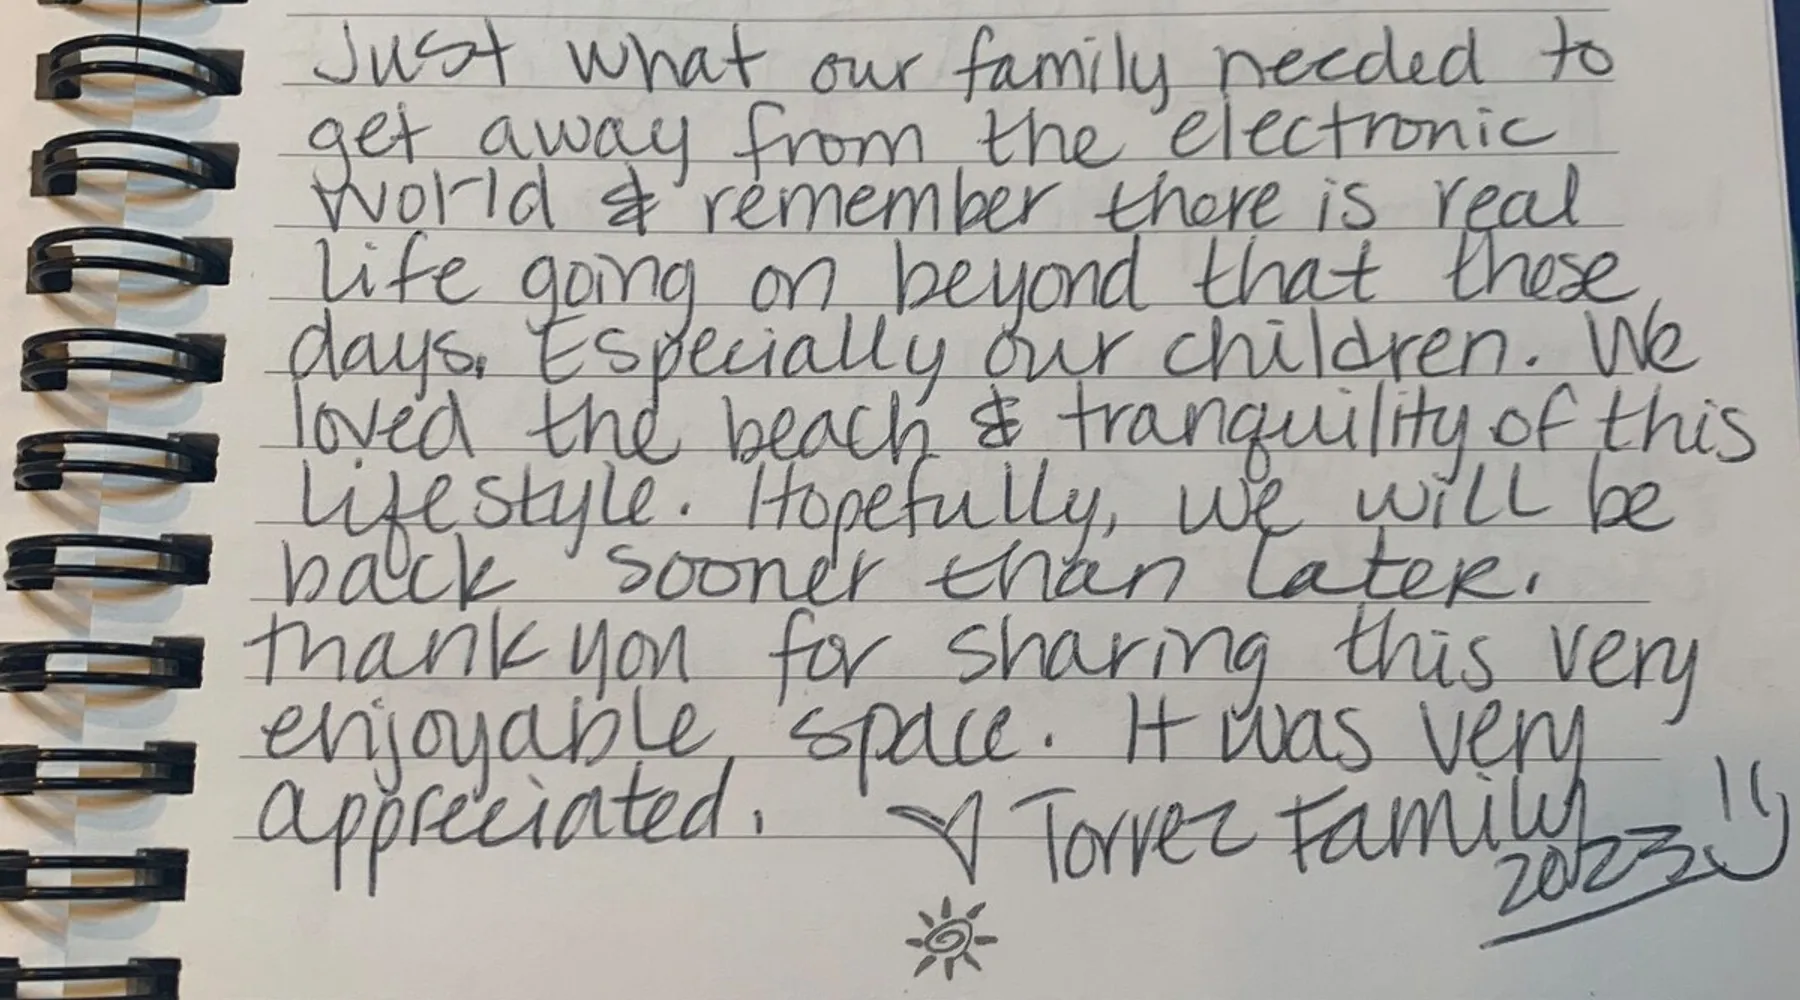 Just what our family needed to
get away from the electronic
world & remember there is real
life going on beyond that these
days. Especially our children. We
loved the beach & tranquility of this
lifestyle. Hopefully, we will be
back sooner than later.
Thank you for sharing this very
enjoyable space. It was very
appreciated. ♡ Torrez Family
2023 :)